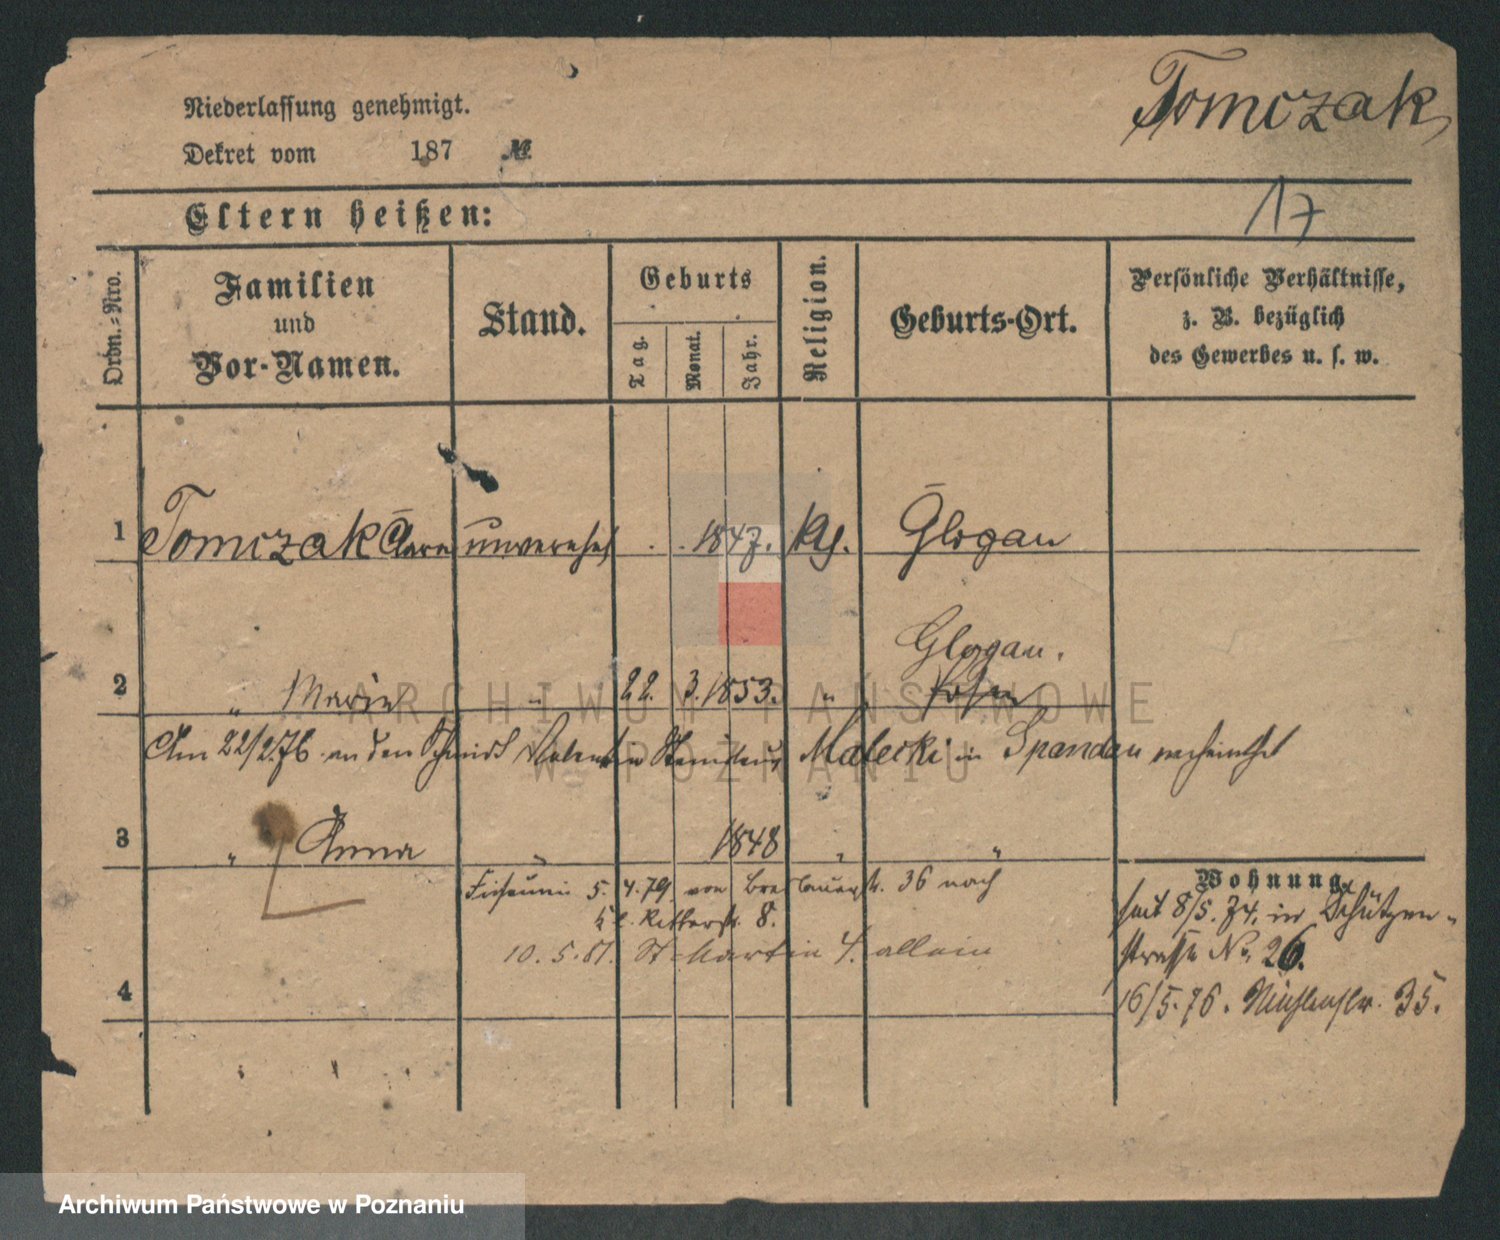 Tomczak
Niederlassung genehmigt.
Dekret vom 187 №
17
Eltern heißen:
Ordn.=Nro.
Familien
und
Vor-Namen.
Stand.
Geburts
Tag.
Monat.
Jahr.
Religion.
Geburts-Ort.
Persönliche Verhältnisse,
z. B. bezüglich
des Gewerbes u. s. w.
1 Tomczak Clara 1847. Glogau
Glogau.
2 „ Marie „ 22. 3. 1853. „
Am 22/2.76 an den Schmidt Valentin Stanislaus Malecki in Spandau verheirathet
3 „ Anna „ 1848 „ „
5. 4. 79 von Breslauerstr. 36 nach
Kl. Ritterstr. 8.
10. 5. 81. St Martin 4. allein
Wohnung
seit 8/5. 74. in Schützen-
strasse No. 26.
4
16/5. 76. Mühlenstr. 35.
ARCHIWUM PAŃSTWOWE
W POZNANIU
Archiwum Państwowe w Poznaniu